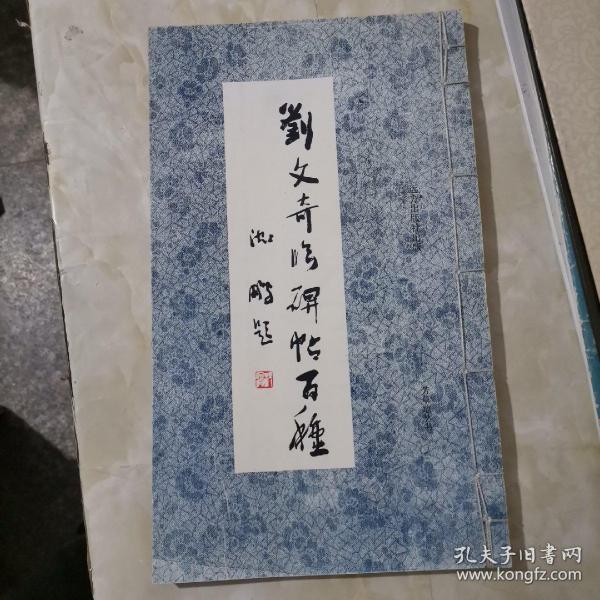 劉文奇临碑帖百種
沈鵬题
孔夫子旧書网
www.kongfz.com